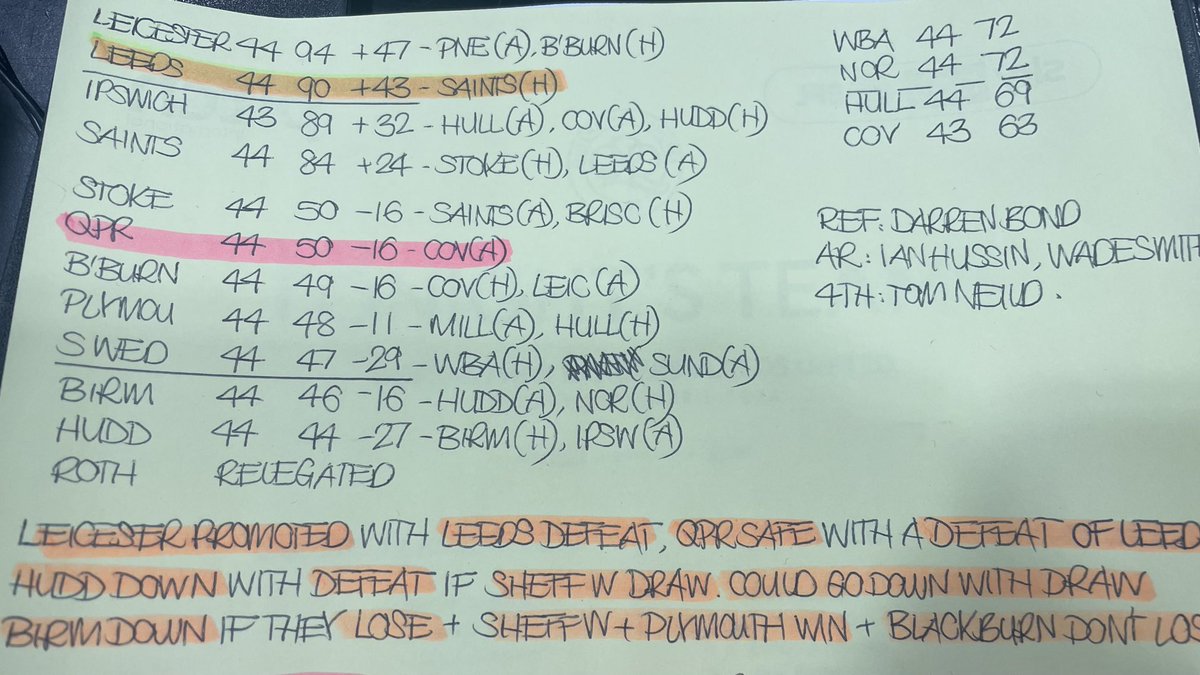 LEICESTER 44 94 +47 - PNE(A), B'BURN(H)
LEEDS 44 90 +43 - SAINTS(H)
IPSWICH 43 89 +32 - HULL(A), COV(A), HUDD(H)
SAINTS 44 84 +24 - STOKE(H), LEEDS(A)
STOKE 44 50 -16 - SAINTS(A), BRISC(H)
QPR 44 50 -16 - COV(A)
B'BURN 44 49 -16 - COV(H), LEIC(A)
PLYMOU 44 48 -11 - MILL(A), HULL(H)
SWED 44 47 -29 - WBA(H), SUND(A)
BIRM 44 46 -16 - HUDD(A), NOR(H)
HUDD 44 44 -27 - BIRM(H), IPSW(A)
ROTH RELEGATED
WBA 44 72
NOR 44 72
HULL 44 69
COV 43 63
REF: DARREN BOND
AR: IAN HUSSIN, WADE SMITH
4TH: TOM NEILD.
LEICESER PROMOTED WITH LEEDS DEFEAT, QPR SAFE WITH A DEFEAT OF LEED
HUDD DOWN WITH DEFEAT IF SHEFF W DRAW. COULD GO DOWN WITH DRAW
BIRM DOWN IF THEY LOSE + SHEFF W + PLYMOUTH WIN + BLACKBURN DONT LOS